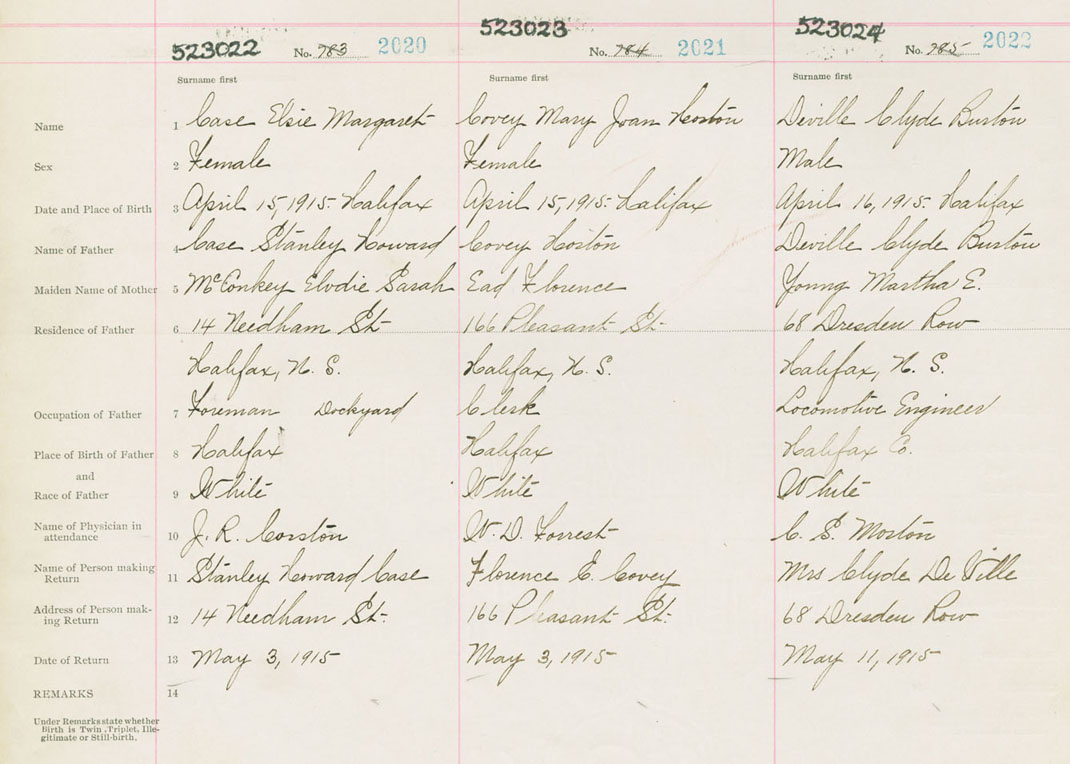 523022 No. 783 2020 523023 No. 784 2021 523024 No. 785 2022
Surname first Surname first Surname first
Name 1 Case Elsie Margaret Covey Mary Joan Hoston Deville Clyde Burton
Sex 2 Female Female Male
Date and Place of Birth 3 April 15, 1915. Halifax April 15, 1915. Halifax April 16, 1915. Halifax
Name of Father 4 Case Stanley Howard Covey Hoston Deville Clyde Burton
Maiden Name of Mother 5 McConkey Elvdie Sarah Ead Florence Young Martha E.
Residence of Father 6 14 Needham St. 166 Pleasant St. 68 Dresden Row
Halifax, N. S. Halifax, N. S. Halifax, N. S.
Occupation of Father 7 Foreman Dockyard Clerk Locomotive Engineer
Place of Birth of Father 8 Halifax Halifax Halifax Co.
and
Race of Father 9 White White White
Name of Physician in
attendance 10 J. R. Corston W. D. Forrest C. S. Morton
Name of Person making
Return 11 Stanley Howard Case Florence E. Covey Mrs Clyde De Ville
Address of Person mak-
ing Return 12 14 Needham St. 166 Pleasant St. 68 Dresden Row
Date of Return 13 May 3, 1915 May 3, 1915 May 11, 1915
REMARKS 14
Under Remarks state whether
Birth is Twin, Triplet, Ille-
gitimate or Still-birth.